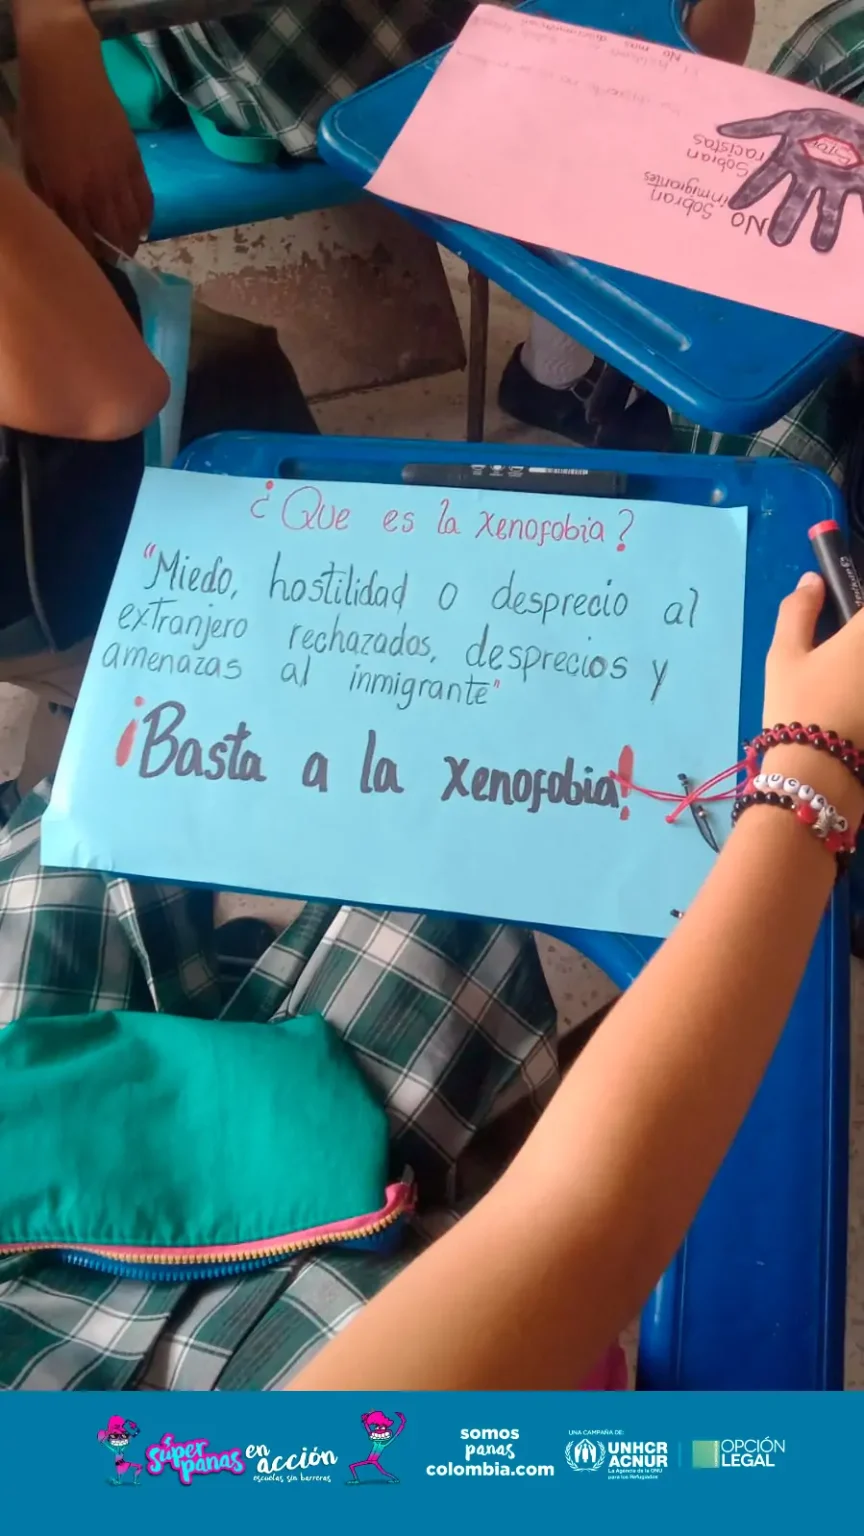 No más discriminación
No
Sobran
inmigrantes
Sobran
racistas
STOP
¿Que es la xenofobia?
"Miedo, hostilidad o desprecio al
extranjero rechazados, desprecios y
amenazas al inmigrante"
¡Basta a la xenofobia!
LUCIANA
súper panas en acción
escuelas sin barreras
somos
panas
colombia.com
UNA CAMPAÑA DE:
UNHCR
ACNUR
La Agencia de la ONU
para los Refugiados
OPCIÓN
LEGAL